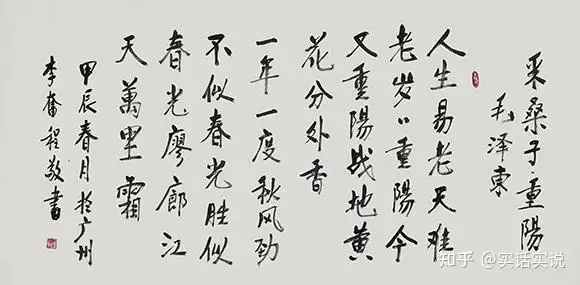 采桑子重陽
毛泽東
人生易老天难
老岁〻重陽今
又重陽战地黄
花分外香
一年一度秋风劲
不似春光胜似
春光廖廊江
天萬里霜
甲辰春月於广州
李奮程敬書
知乎 @实话实说